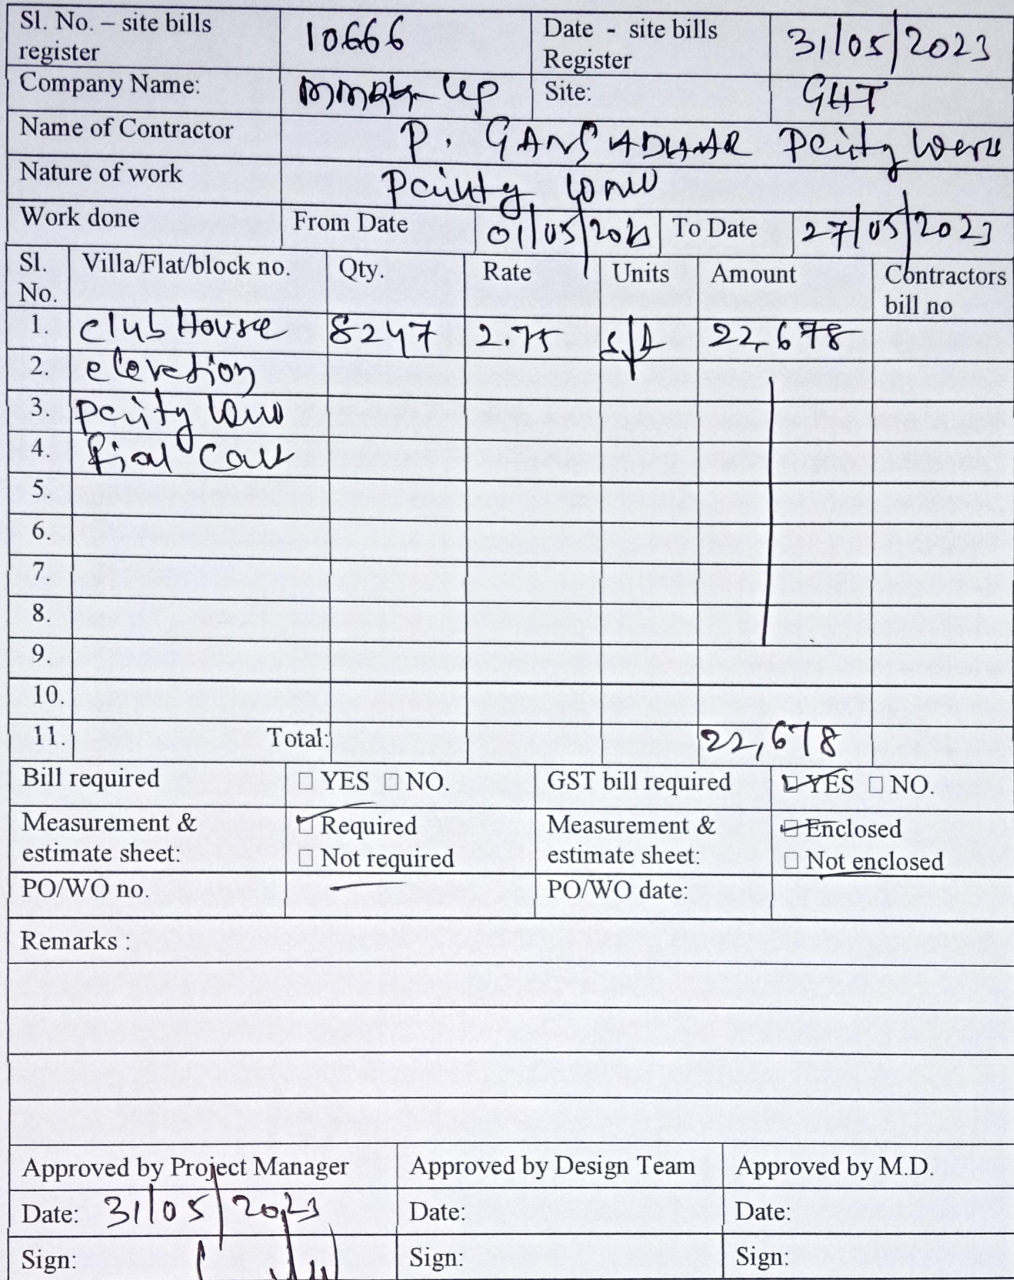 Sl. No. – site bills register 10666 Date - site bills Register 31/05/2023
Company Name: Site: GHT
Name of Contractor P. GANGADHAR
Nature of work
Work done From Date 01/05/2023 To Date 27/05/2023
Sl. No. Villa/Flat/block no. Qty. Rate Units Amount Contractors bill no
1. Club House 8247 sft 22,678
2. elevation
3.
4.
5.
6.
7.
8.
9.
10.
11. Total: 22,678
Bill required ☐ YES ☐ NO. GST bill required ☐ YES ☐ NO.
Measurement & estimate sheet: ☐ Required ☐ Not required Measurement & estimate sheet: ☐ Enclosed ☐ Not enclosed
PO/WO no. PO/WO date:
Remarks :
Approved by Project Manager Approved by Design Team Approved by M.D.
Date: 31/05/2023 Date: Date:
Sign: Sign: Sign: